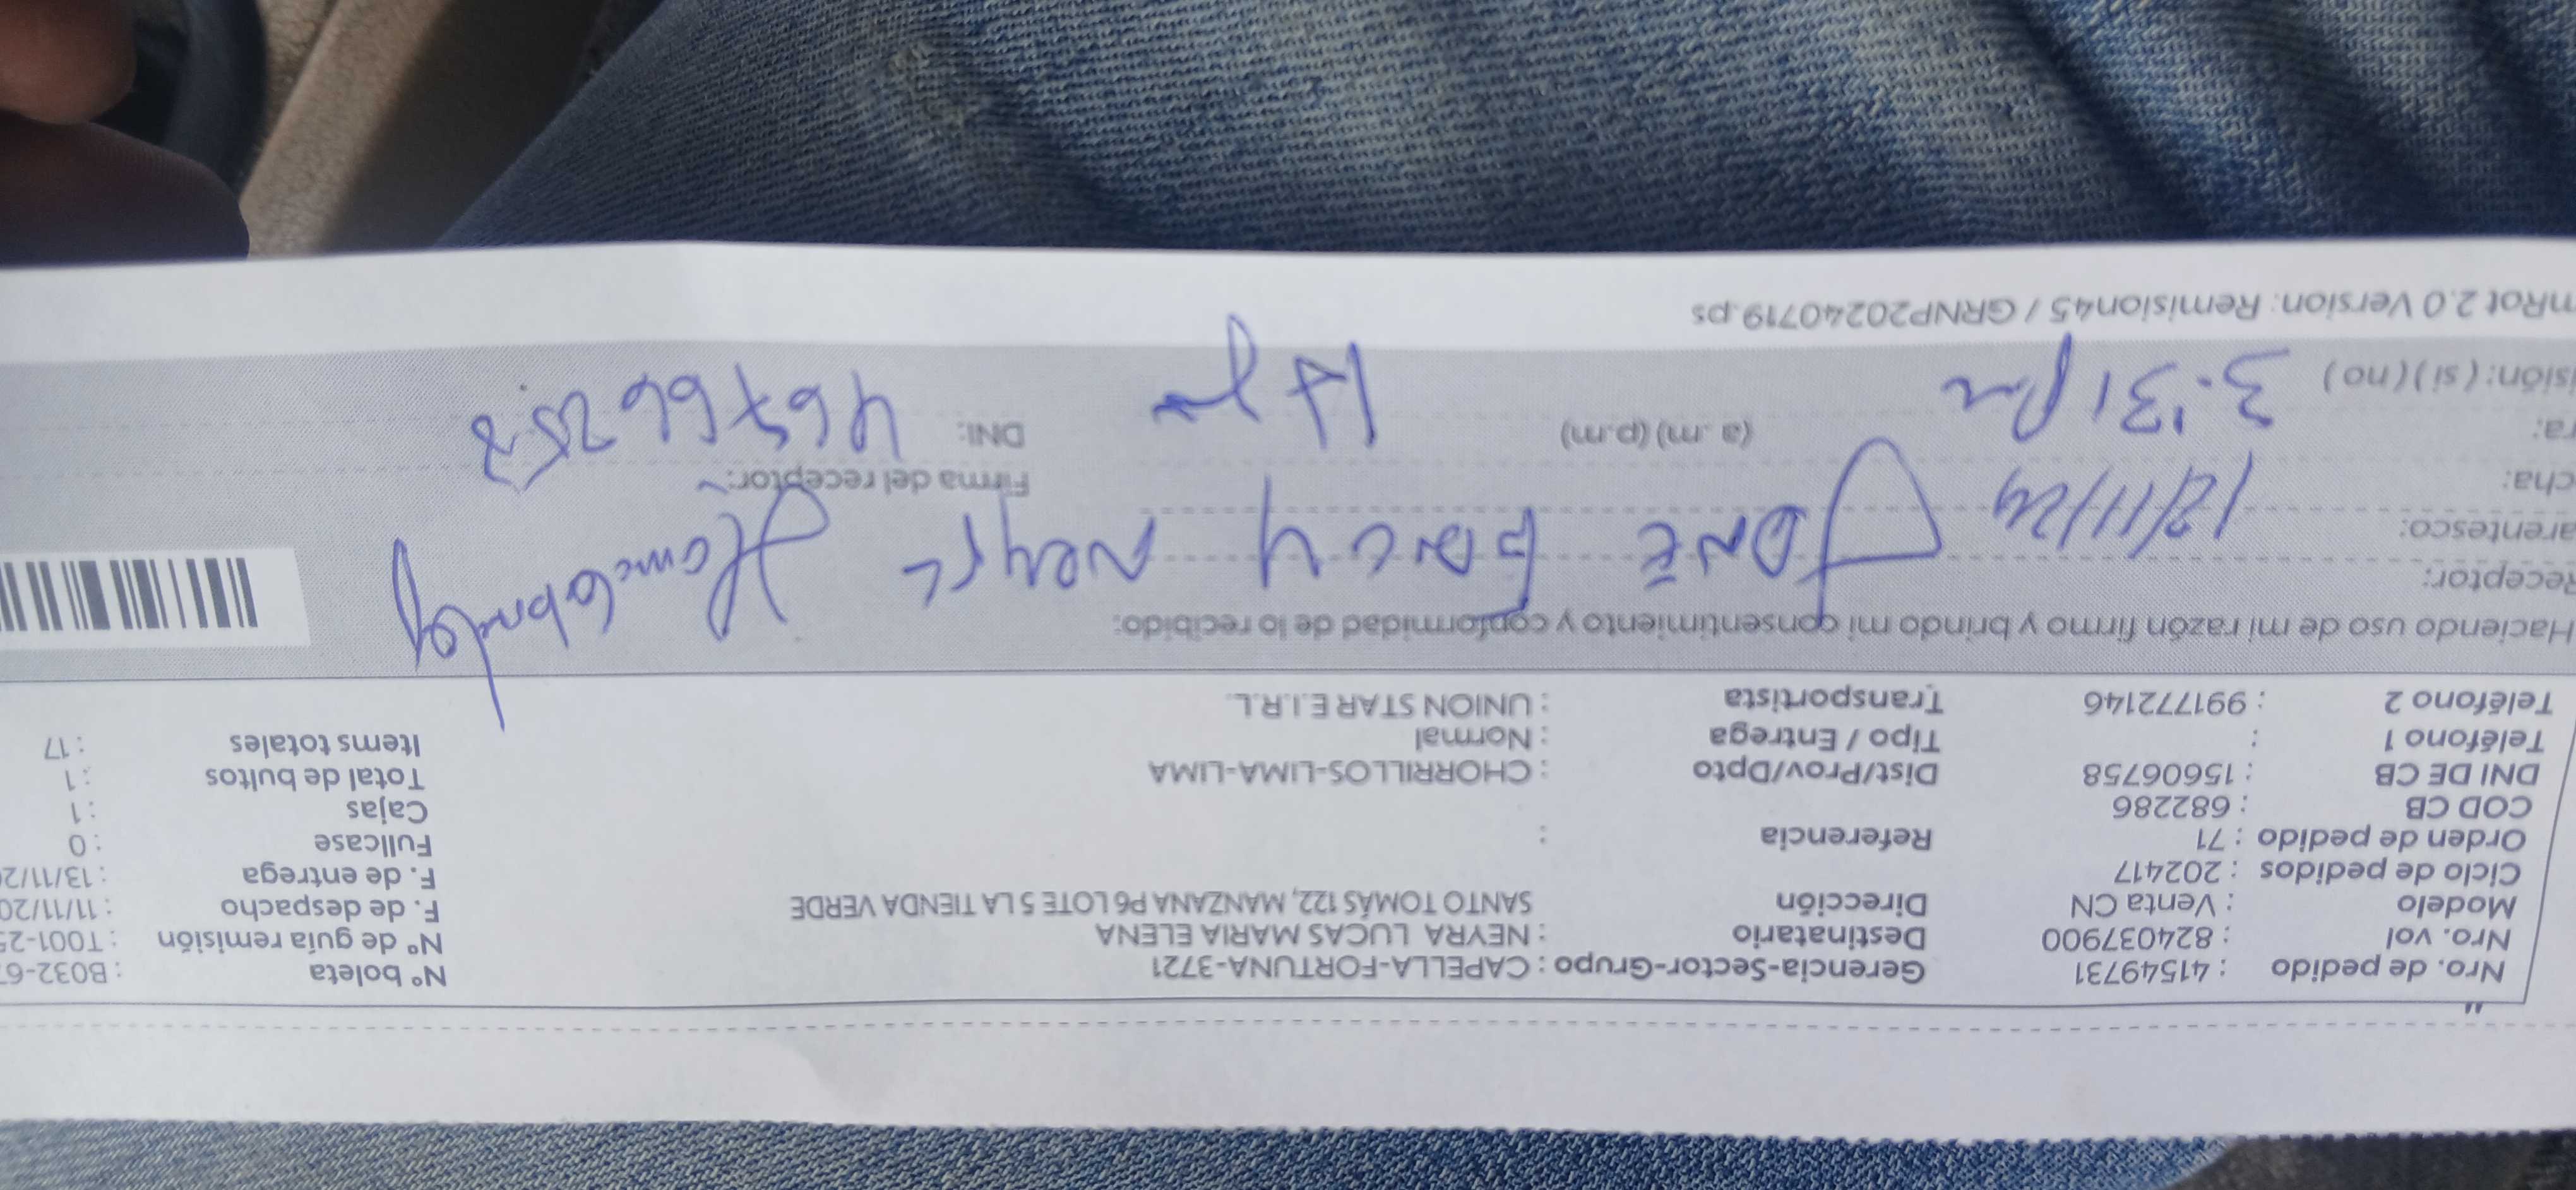 Nro. de pedido : 41549731 Gerencia-Sector-Grupo : CAPELLA-FORTUNA-3721 Nº boleta : B032-6
Nro. vol : 824037900 Destinatario : NEYRA LUCAS MARIA ELENA Nº de guía remisión : T001-25
Modelo : Venta CN Dirección SANTO TOMÁS 122, MANZANA P6 LOTE 5 LA TIENDA VERDE F. de despacho : 11/11/20
Ciclo de pedidos : 202417 F. de entrega : 13/11/2
Orden de pedido : 71 Referencia : Fullcase : 0
COD CB : 682286 Cajas : 1
DNI DE CB : 15606758 Dist/Prov/Dpto : CHORRILLOS-LIMA-LIMA Total de bultos : 1
Teléfono 1 : Tipo / Entrega : Normal Items totales : 17
Teléfono 2 : 991772146 Transportista : UNION STAR E.I.R.L.
Haciendo uso de mi razón firmo y brindo mi consentimiento y conformidad de lo recibido:
Receptor:
arentesco:
cha: 12/11/24 Firma del receptor:
ra: 3:31 pm (a.m) (p.m) DNI:
isión: ( si ) ( no )
mRot 2.0 Version: Remision45 / GRNP20240719.ps